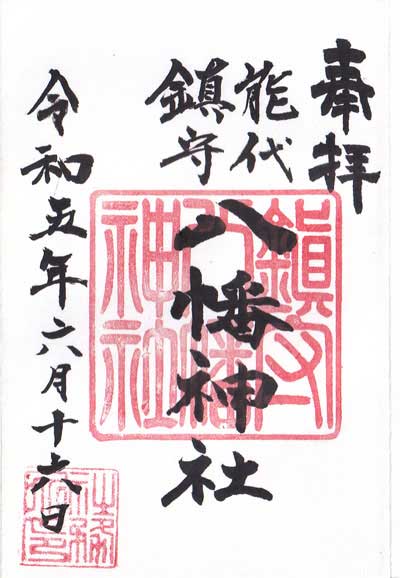 奉拝
能代
鎮守
八幡神社
令和五年六月十六日
鎮守
八幡
神社
社務